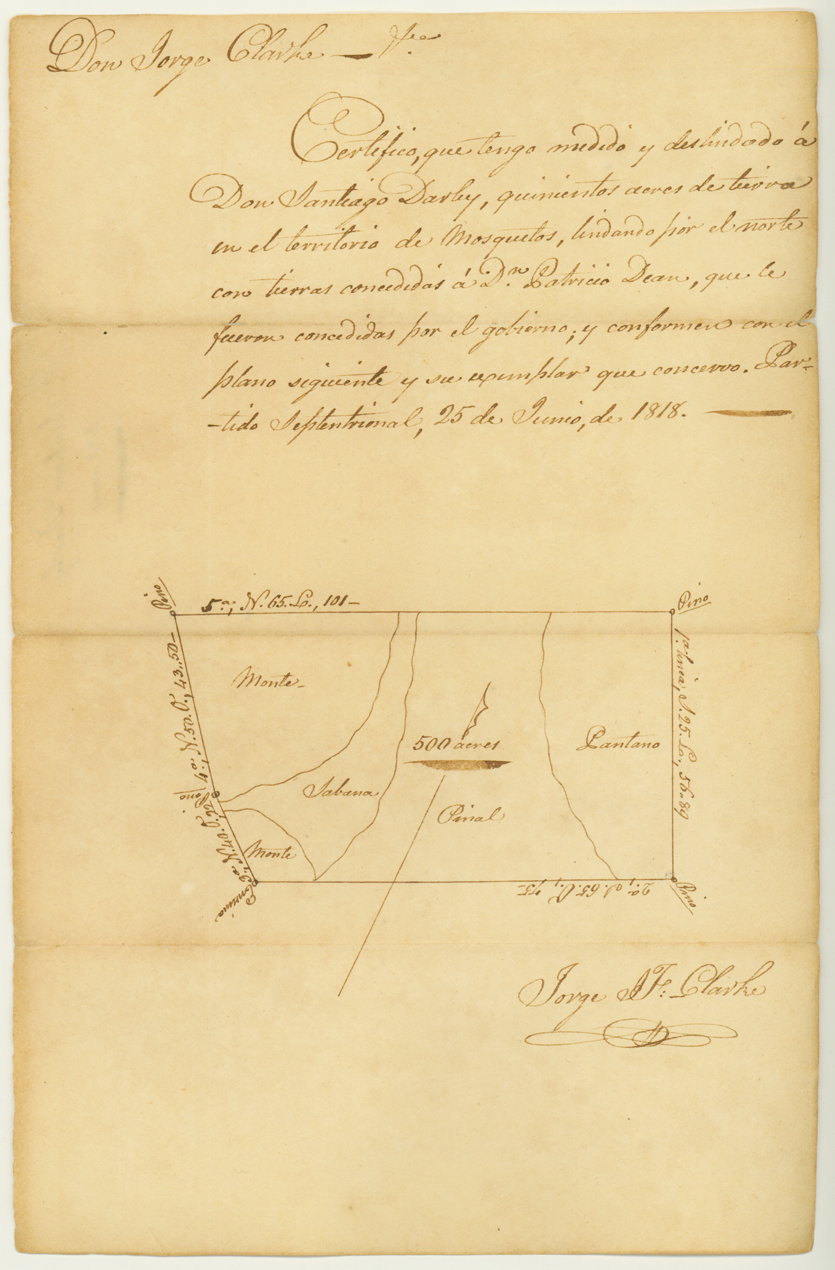 Don Jorge Clarke — &ca
Certifico, que tengo medido y deslindado á
Don Santiago Darley, quinientos acres de tierra
en el territorio de Mosquetos, lindando por el norte
con tierras concedidas á Dn. Patricio Dean, que le
fueron concedidas por el gobierno; y conformen con el
plano siguiente y su exemplar que concervo. Par-
-tido Septentrional, 25 de Junio, de 1818. —
Pino
5a; N. 65. Eo., 101-
Pino
1a. linea, S. 25. Eo., 56..89
4a. N. 50. O., 43..50-
Monte-
500 ácres
Pantano
Sabana
Pinal
Pino
3a, N. 40. O., 22
Monte
2a, S. 65. O., 75-
Pino
Encina
Jorge J. F. Clarke